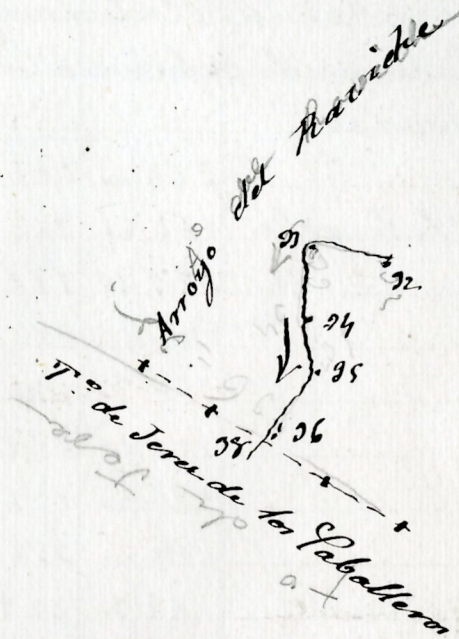 Arroyo del
93
92.
94
95
96
98
T.º de Jerez de los Caballeros